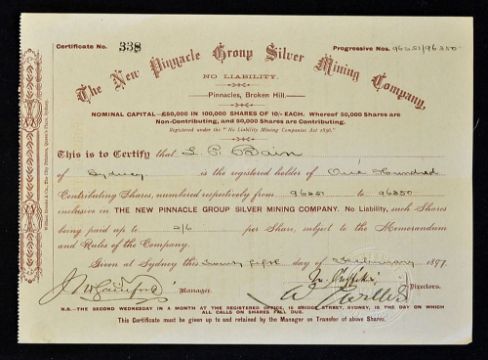 Certificate No. 338
Progressive Nos. 96251/96350
The New Pinnacle Group Silver Mining Company,
NO LIABILITY.
Pinnacles, Broken Hill.
NOMINAL CAPITAL—£50,000 IN 100,000 SHARES OF 10/- EACH. Whereof 50,000 Shares are
Non-Contributing, and 50,000 Shares are Contributing.
Registered under the "No Liability Mining Companies Act 1896."
This is to Certify that L. P. Bain
of Sydney is the registered holder of One Hundred
Contributing Shares, numbered respectively from 96251 to 96350
inclusive in THE NEW PINNACLE GROUP SILVER MINING COMPANY. No Liability, such Shares
being paid up to 2/6 per Share, subject to the Memorandum
and Rules of the Company.
Given at Sydney this Twenty fifth day of 1897.
Manager.
Directors.
N.B.—THE SECOND WEDNESDAY IN A MONTH AT THE REGISTERED OFFICE, BRIDGE STREET, SYDNEY, IS THE DAY ON WHICH
ALL CALLS ON SHARES FALL DUE.
This Certificate must be given up to and retained by the Manager on Transfer of above Shares.